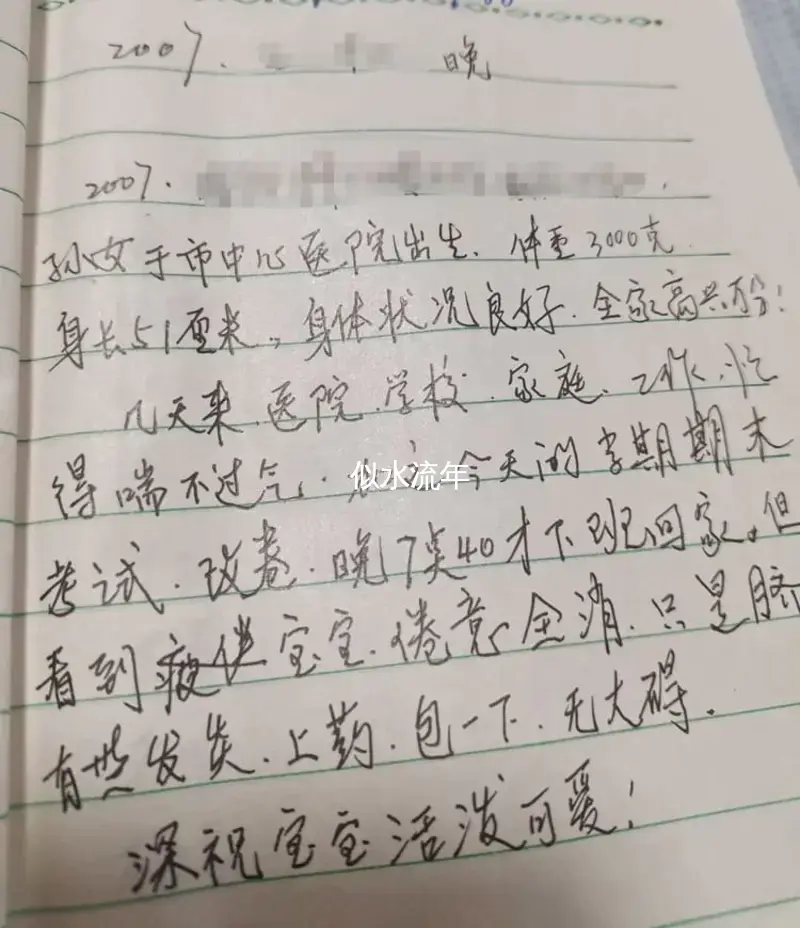 2007. 晚
2007.
孙女于市中心医院出生、体重3000克
身长51厘米。身体状况良好.全家高兴万分!
几天来.医院.学校.家庭.工作.忙
得喘不过气. 今天的学期期末
似水流年
考试.改卷.晚7点40才下班回家.但
看到宝宝.倦意全消.只是脐
有些发炎.上药.包一下.无大碍.
深祝宝宝活泼可爱!